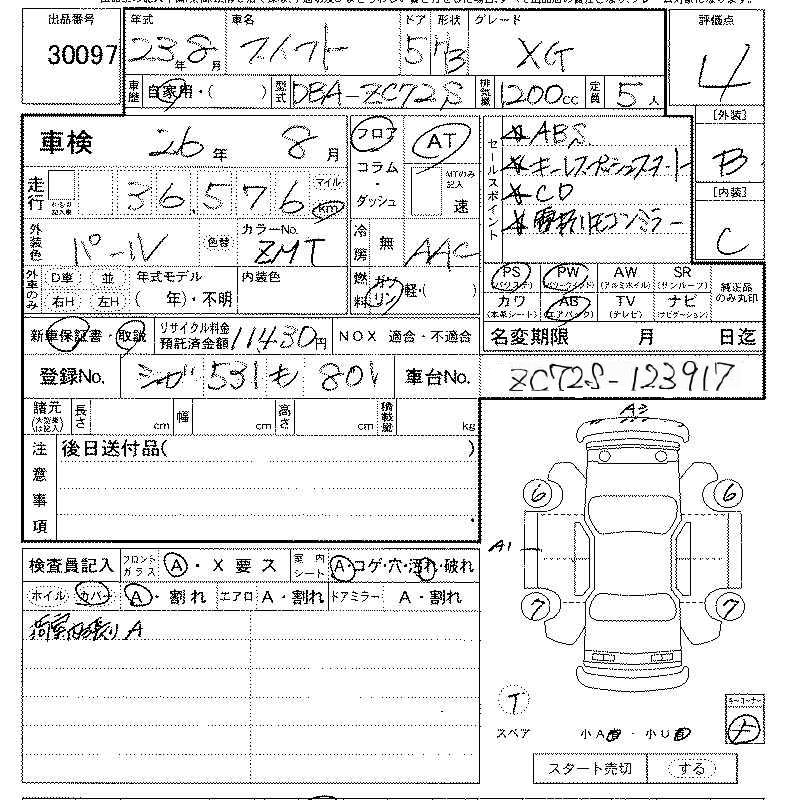 出品番号 年式 車名 ドア 形状 グレード 評価点
30097 23年8月 スイフト 5 HB XG 4
車歴 自家用・( ) 型式 DBA-ZC72S 排気量 1200cc 定員 5人
[外装]
車検 26年 8月 フロア AT セールスポイント ABS B
走行 36,576 マイル km コラム・ダッシュ MTのみ記入 速 キーレス・プッシュスタート
CD [内装]
外装色 パール 色替 カラーNo. ZMT 冷房 無 AAC 電格リモコンミラー C
外車のみ D車 並 年式モデル 内装色 燃料 ガソリン 軽・( ) PS (パワステ) PW (パワーウインド) AW (アルミホイル) SR (サンルーフ) 純正品のみ丸印
右H 左H ( 年)・不明 カワ (本革シート) AB (エアバック) TV (テレビ) ナビ (ナビゲーション)
新車保証書・取説 リサイクル料金預託済金額 11,430円 NOX 適合・不適合 名変期限 月 日迄
登録No. シガ 531 も 801 車台No. ZC72S-123917
諸元 (大型車は記入) 長さ cm 幅 cm 高さ cm 積載量 kg
A3
注意事項 後日送付品( )
6 6
A1
検査員記入 フロントガラス A・X要ス 室内シート A・コゲ・穴・汚れ・破れ
ホイル カバー A・割れ エアロ A・割れ ドアミラー A・割れ
7 7
荷室内張り A
T
スペア 小A ・小U キーコーナー ナ
スタート売切 する